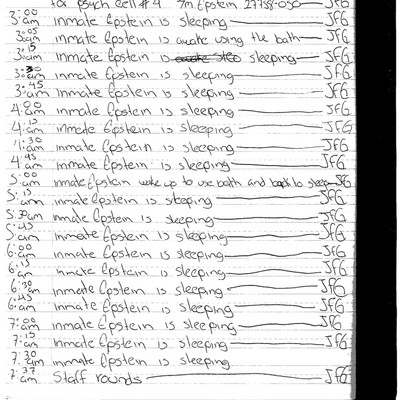 for psych cell #4 I/m Epstein JFG
3:00 am inmate Epstein is sleeping JFG
3:05 am inmate Epstein is awake using the bath JFG
3:15 am inmate Epstein is sleeping JFG
3:30 am inmate Epstein is sleeping JFG
3:45 am inmate Epstein is sleeping JFG
4:00 am inmate Epstein is sleeping JFG
4:15 am inmate Epstein is sleeping JFG
4:30 am inmate Epstein is sleeping JFG
4:45 am inmate Epstein is sleeping JFG
5:00 am inmate Epstein woke up to use bath and back to sleep JFG
5:15 am inmate Epstein is sleeping JFG
5:30 am inmate Epstein is sleeping JFG
5:45 am inmate Epstein is sleeping JFG
6:00 am inmate Epstein is sleeping JFG
6:15 am inmate Epstein is sleeping JFG
6:30 am inmate Epstein is sleeping JFG
6:45 am inmate Epstein is sleeping JFG
7:00 am inmate Epstein is sleeping JFG
7:15 am inmate Epstein is sleeping JFG
7:30 am inmate Epstein is sleeping
7:37 am Staff rounds JFG